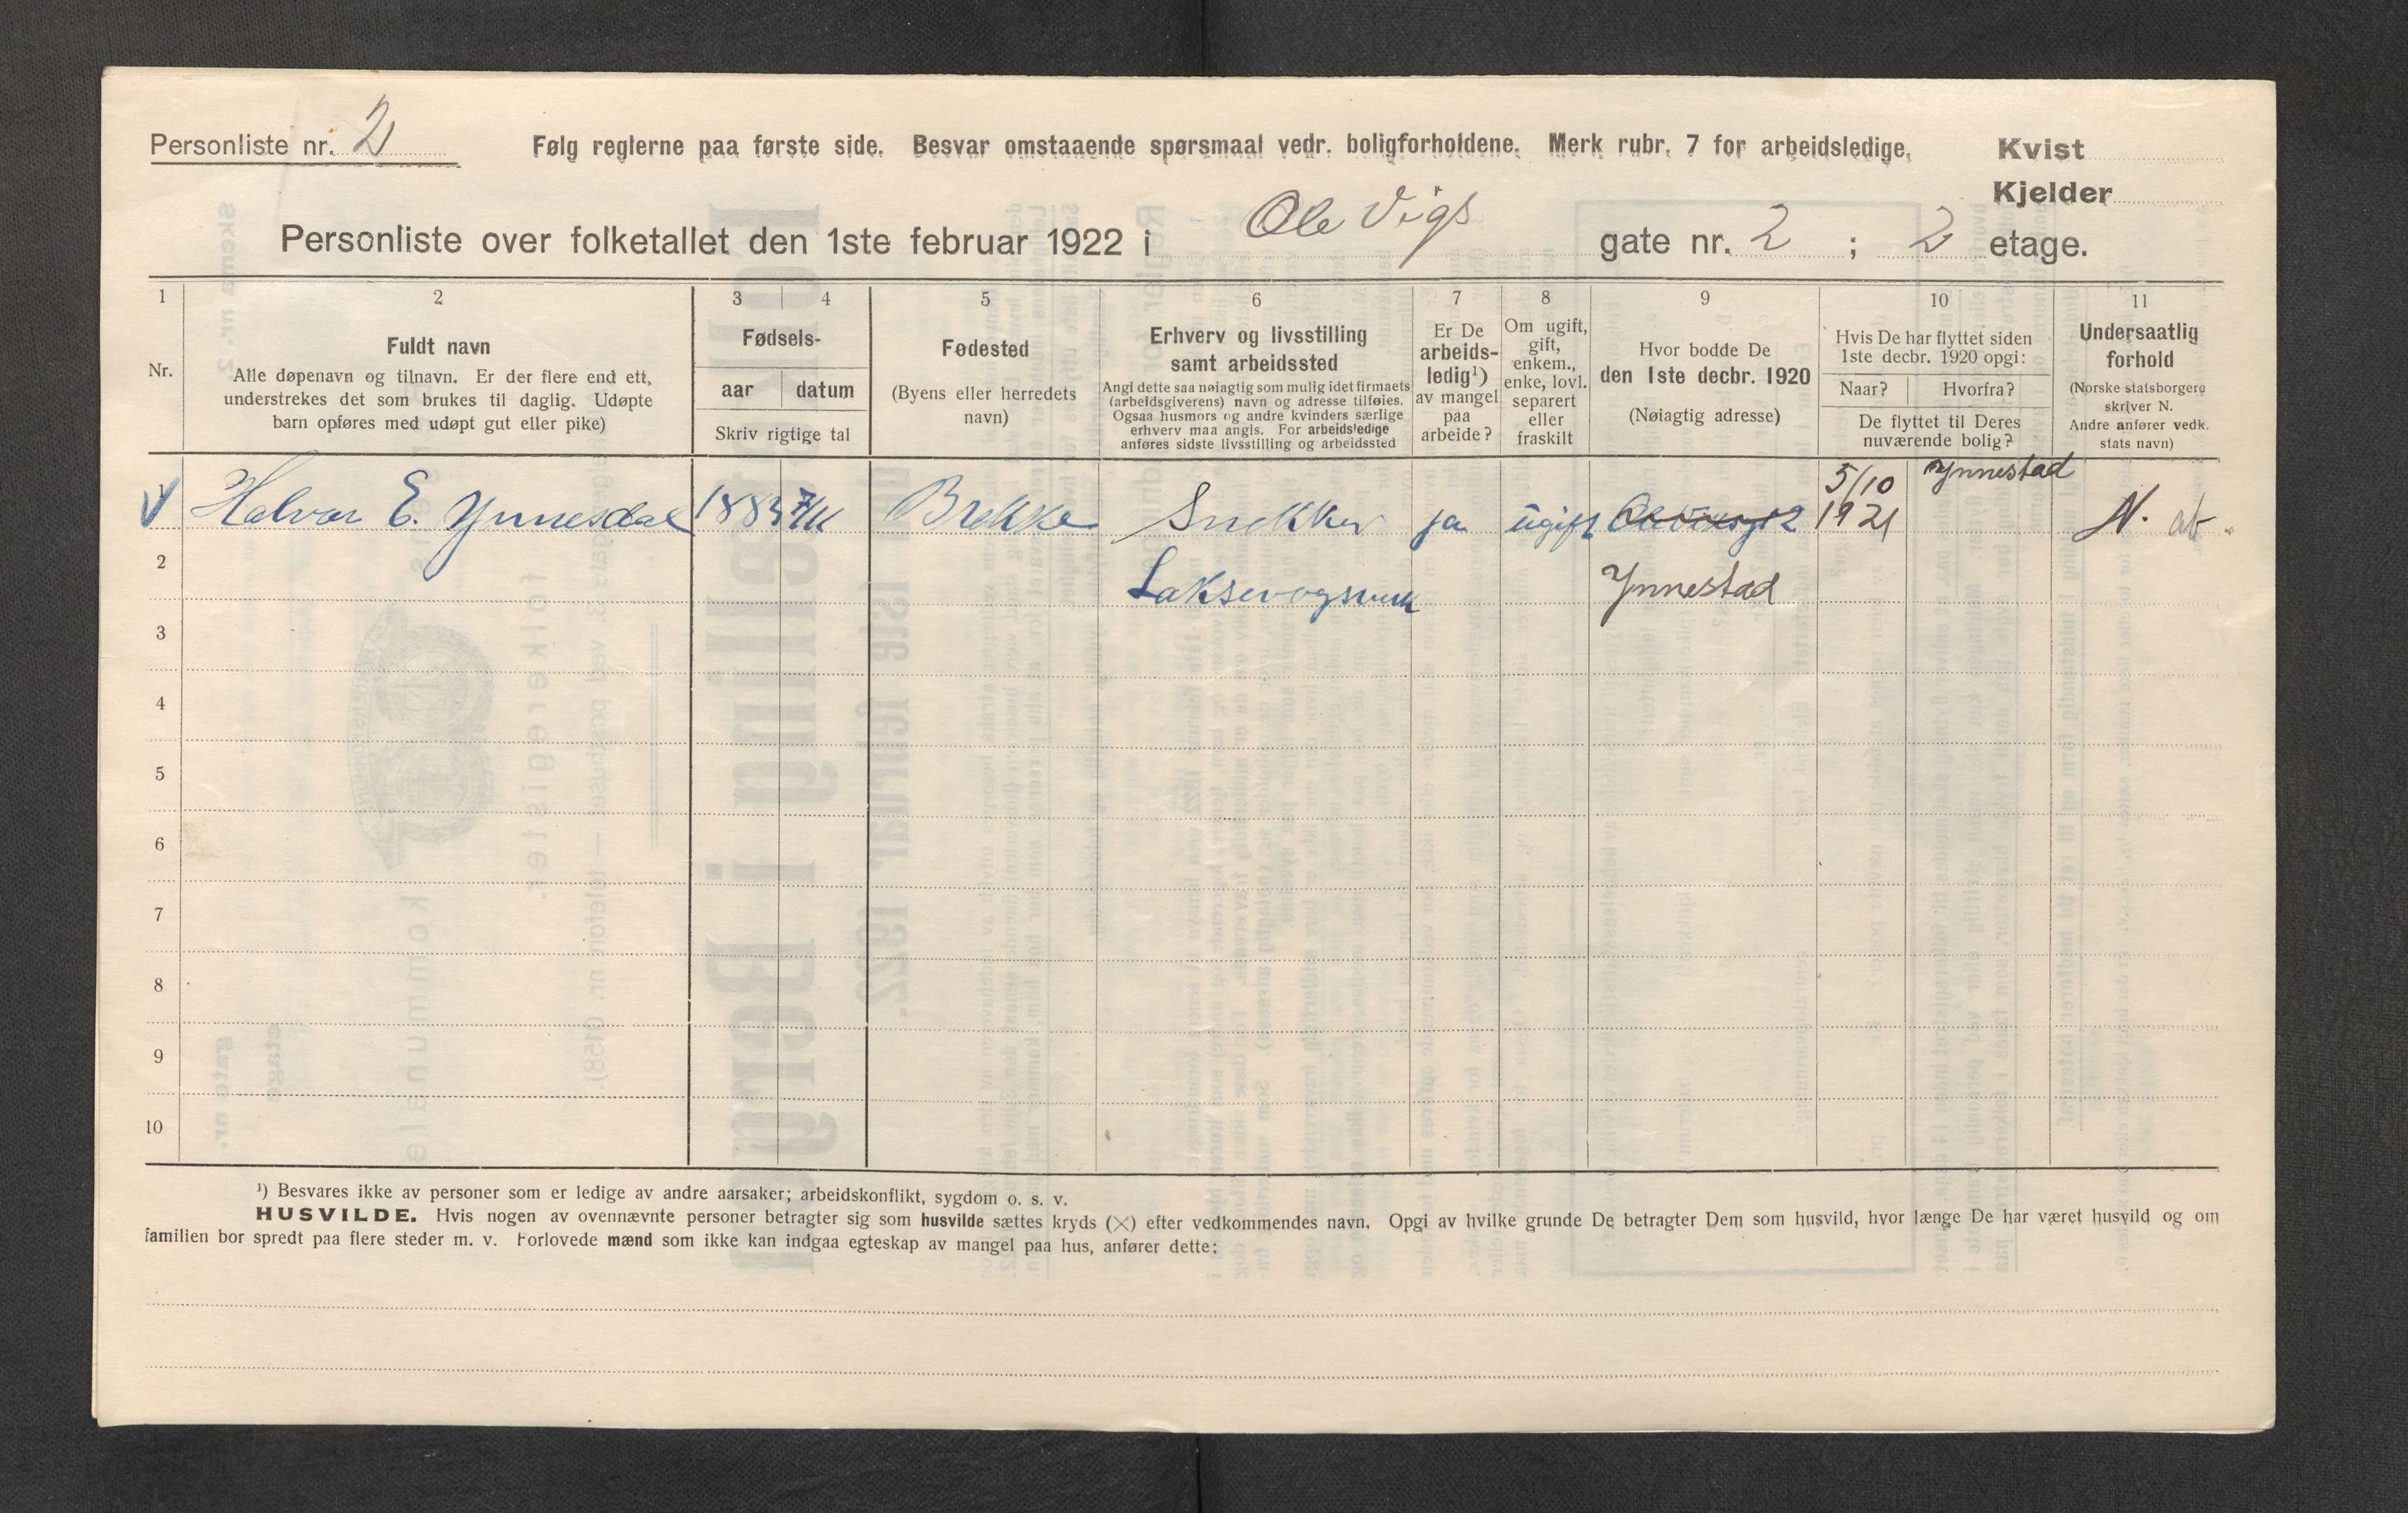 Personliste nr. 2 Følg reglerne paa første side. Besvar omstaaende spørsmaal vedr. boligforholdene. Merk rubr. 7 for arbeidsledige. Kvist
Kjelder
Personliste over folketallet den 1ste februar 1922 i Ole Vigs gate nr. 2 ; 2 etage.
1 2 3 4 5 6 7 8 9 10 11
Nr.
Fuldt navn
Alle døpenavn og tilnavn. Er der flere end ett,
understrekes det som brukes til daglig. Udøpte
barn opføres med udøpt gut eller pike)
Fødsels-
aar datum
Skriv rigtige tal
Fødested
(Byens eller herredets
navn)
Erhverv og livsstilling
samt arbeidssted
Angi dette saa nøiagtig som mulig idet firmaets
(arbeidsgiverens) navn og adresse tilføies.
Ogsaa husmors og andre kvinders særlige
erhverv maa angis. For arbeidsledige
anføres sidste livsstilling og arbeidssted
Er De
arbeids-
ledig¹)
av mangel
paa
arbeide?
Om ugift,
gift,
enkem.,
enke, lovl.
separert
eller
fraskilt
Hvor bodde De
den 1ste decbr. 1920
(Nøiagtig adresse)
Hvis De har flyttet siden
1ste decbr. 1920 opgi:
Naar? Hvorfra?
De flyttet til Deres
nuværende bolig?
Undersaatlig
forhold
(Norske statsborgere
skriver N.
Andre anfører vedk.
stats navn)
5/10 Ynnestad
Halvor E. Ynnesdal 1883 Brekke Snekker ja ugift 1921 N.
2 Laksevogsverk Ynnestad
3
4
5
6
7
8
9
10
¹) Besvares ikke av personer som er ledige av andre aarsaker; arbeidskonflikt, sygdom o. s. v.
HUSVILDE. Hvis nogen av ovennævnte personer betragter sig som husvilde sættes kryds (×) efter vedkommendes navn. Opgi av hvilke grunde De betragter Dem som husvild, hvor længe De har været husvild og om
familien bor spredt paa flere steder m. v. Forlovede mænd som ikke kan indgaa egteskap av mangel paa hus, anfører dette: